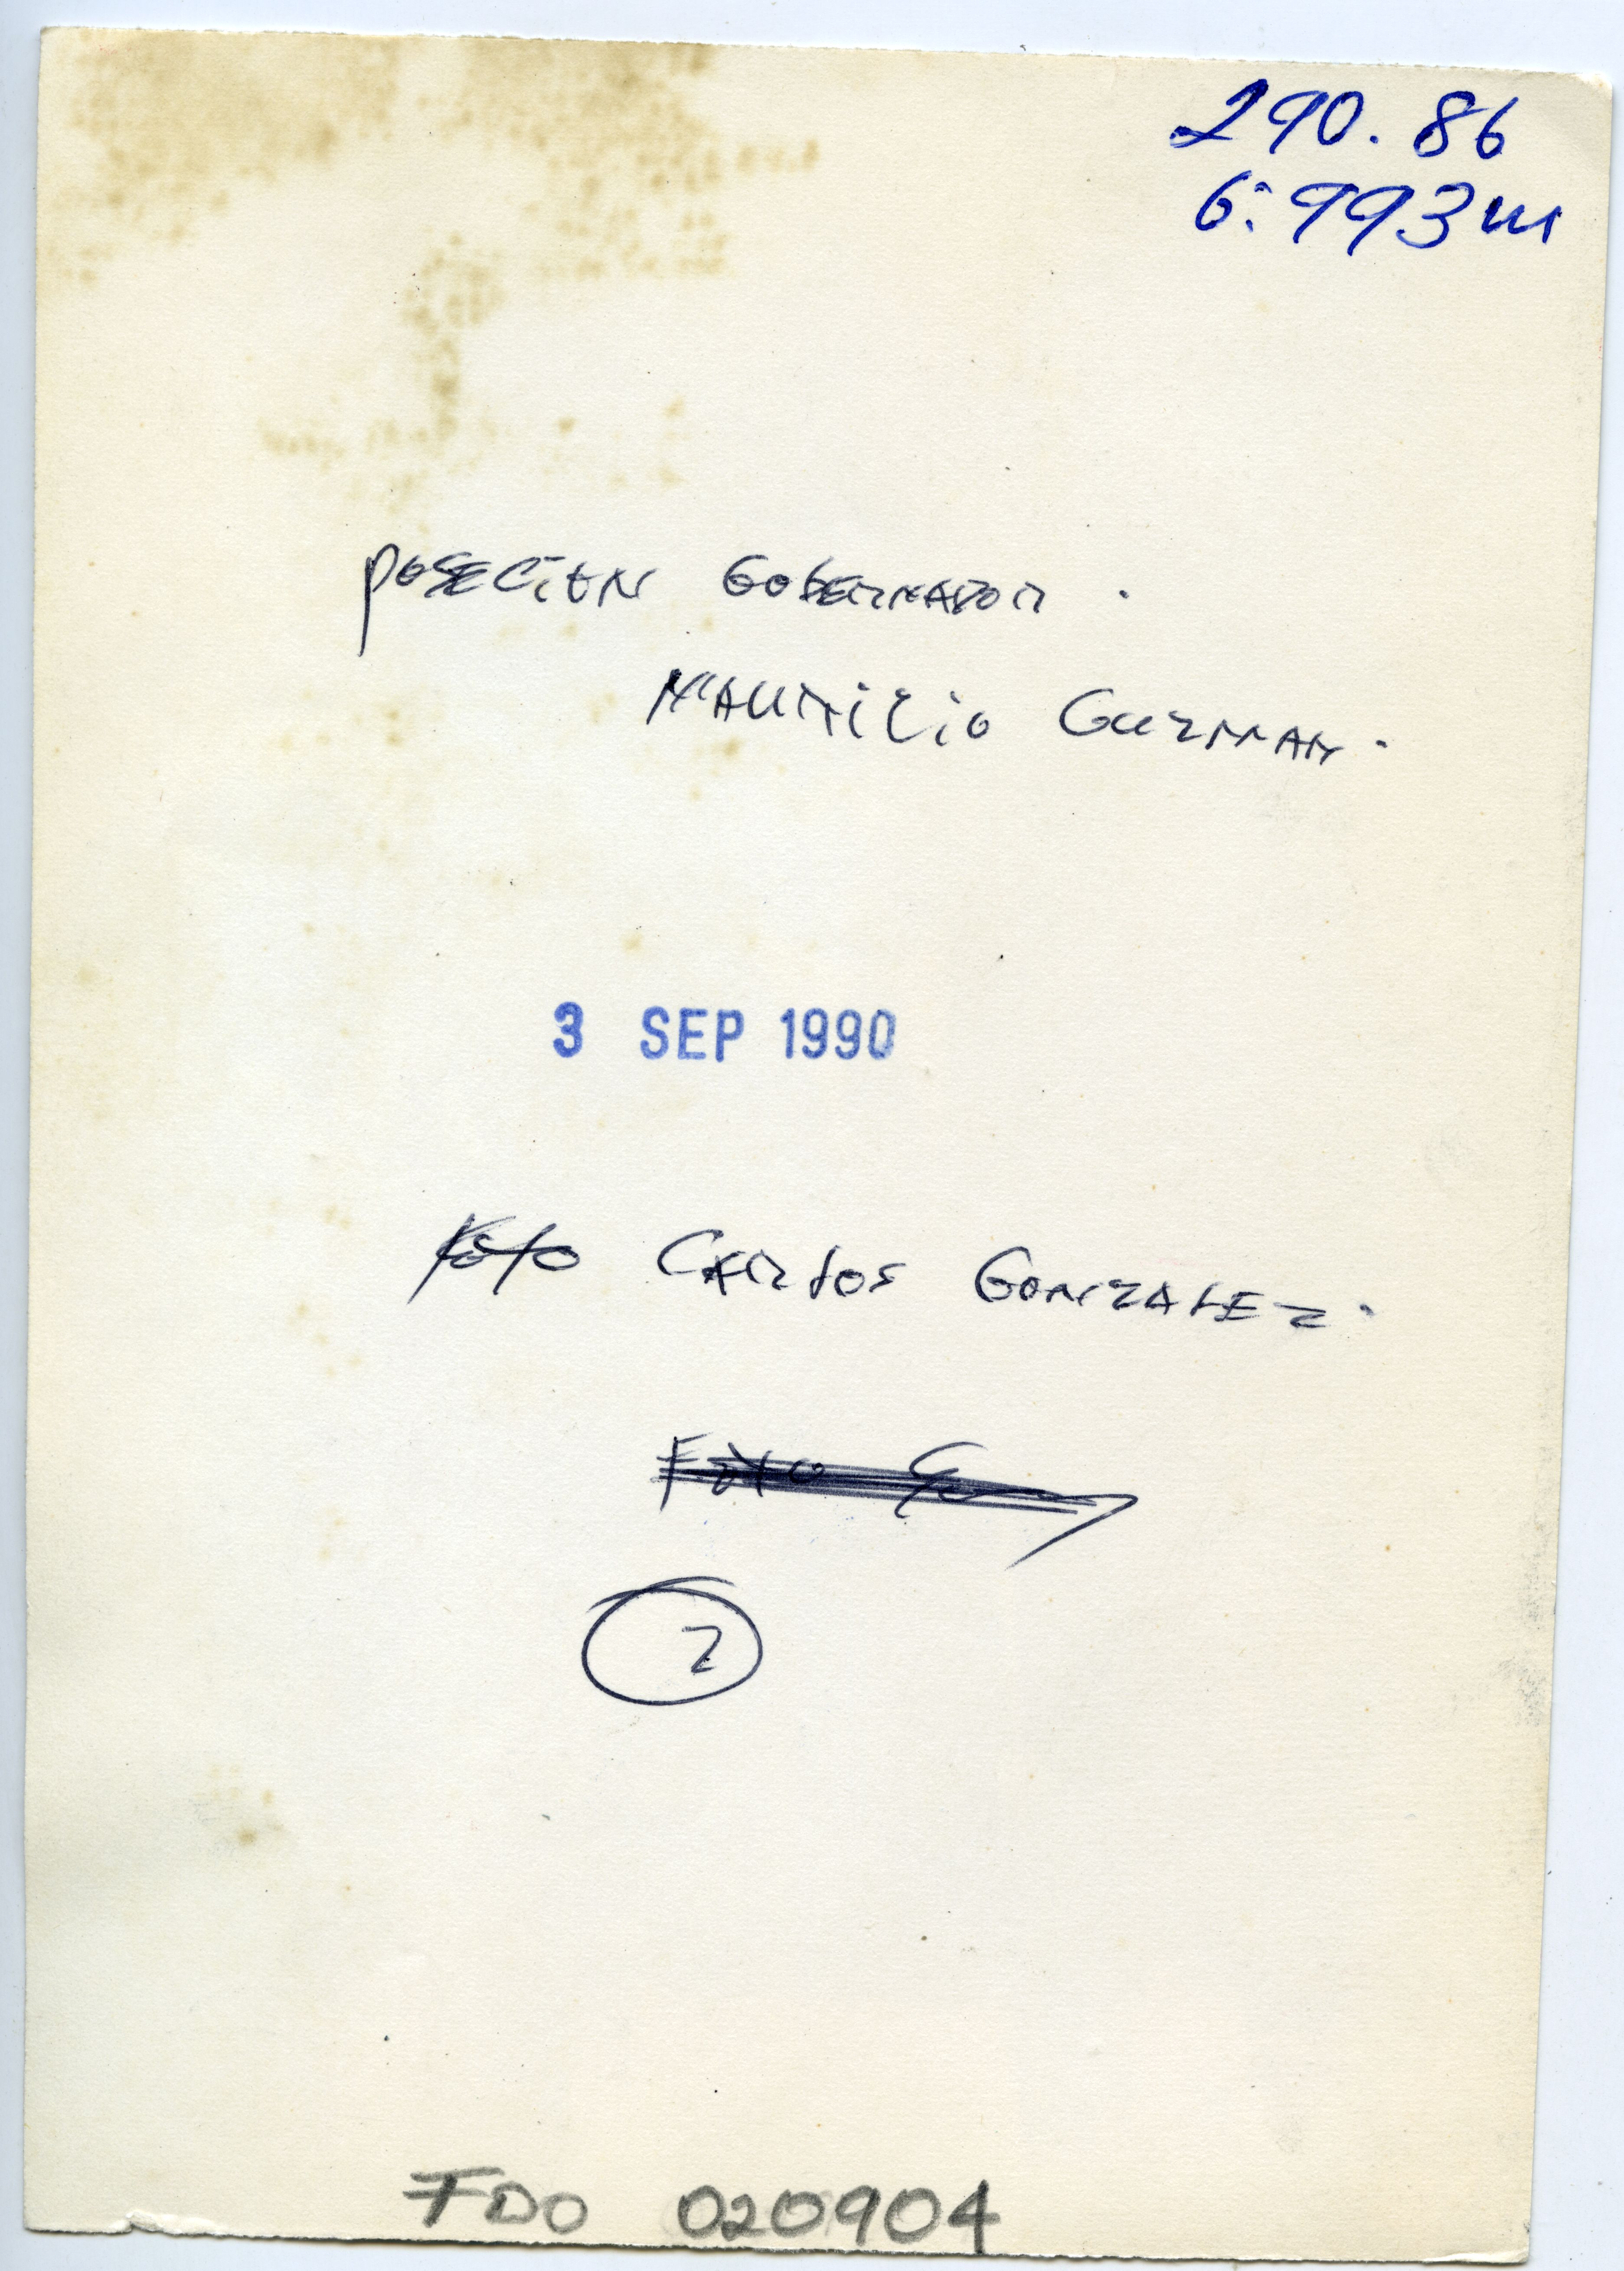 290.86
G:993m
POSECION GOBERNADOR.
MAURICIO GUZMAN.
3 SEP 1990
Foto CARLOS GONZALEZ.
Foto
2
FDO 020904